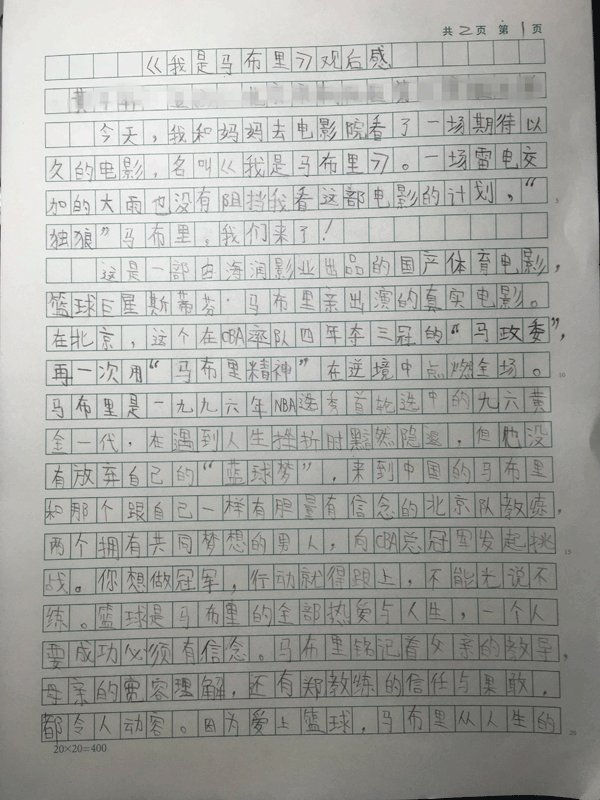 共2页 第1页
《我是马布里》观后感
今天，我和妈妈去电影院看了一场期待以
久的电影，名叫《我是马布里》。一场雷电交
加的大雨也没有阻挡我看这部电影的计划，“
独狼”马布里，我们来了！
这是一部由海润影业出品的国产体育电影，
篮球巨星斯蒂芬·马布里亲出演的真实电影。
在北京，这个在CBA率队四年夺三冠的“马政委”，
再一次用“马布里精神”在逆境中点燃全场。
马布里是一九九六年NBA选秀首轮选中的九六黄
金一代，在遇到人生挫折时黯然隐退，但他没
有放弃自己的“篮球梦”，来到中国的马布里
和那个跟自己一样有胆量有信念的北京队教练，
两个拥有共同梦想的男人，向CBA总冠里发起挑
战。你想做冠军，行动就得跟上，不能光说不
练。篮球是马布里的全部热爱与人生，一个人
要成功必须有信念。马布里铭记着父亲的教导，
母亲的宽容理解，还有郑教练的信任与果敢，
都令人动容。因为爱上篮球，马布里从人生的
20×20=400
5
10
15
20